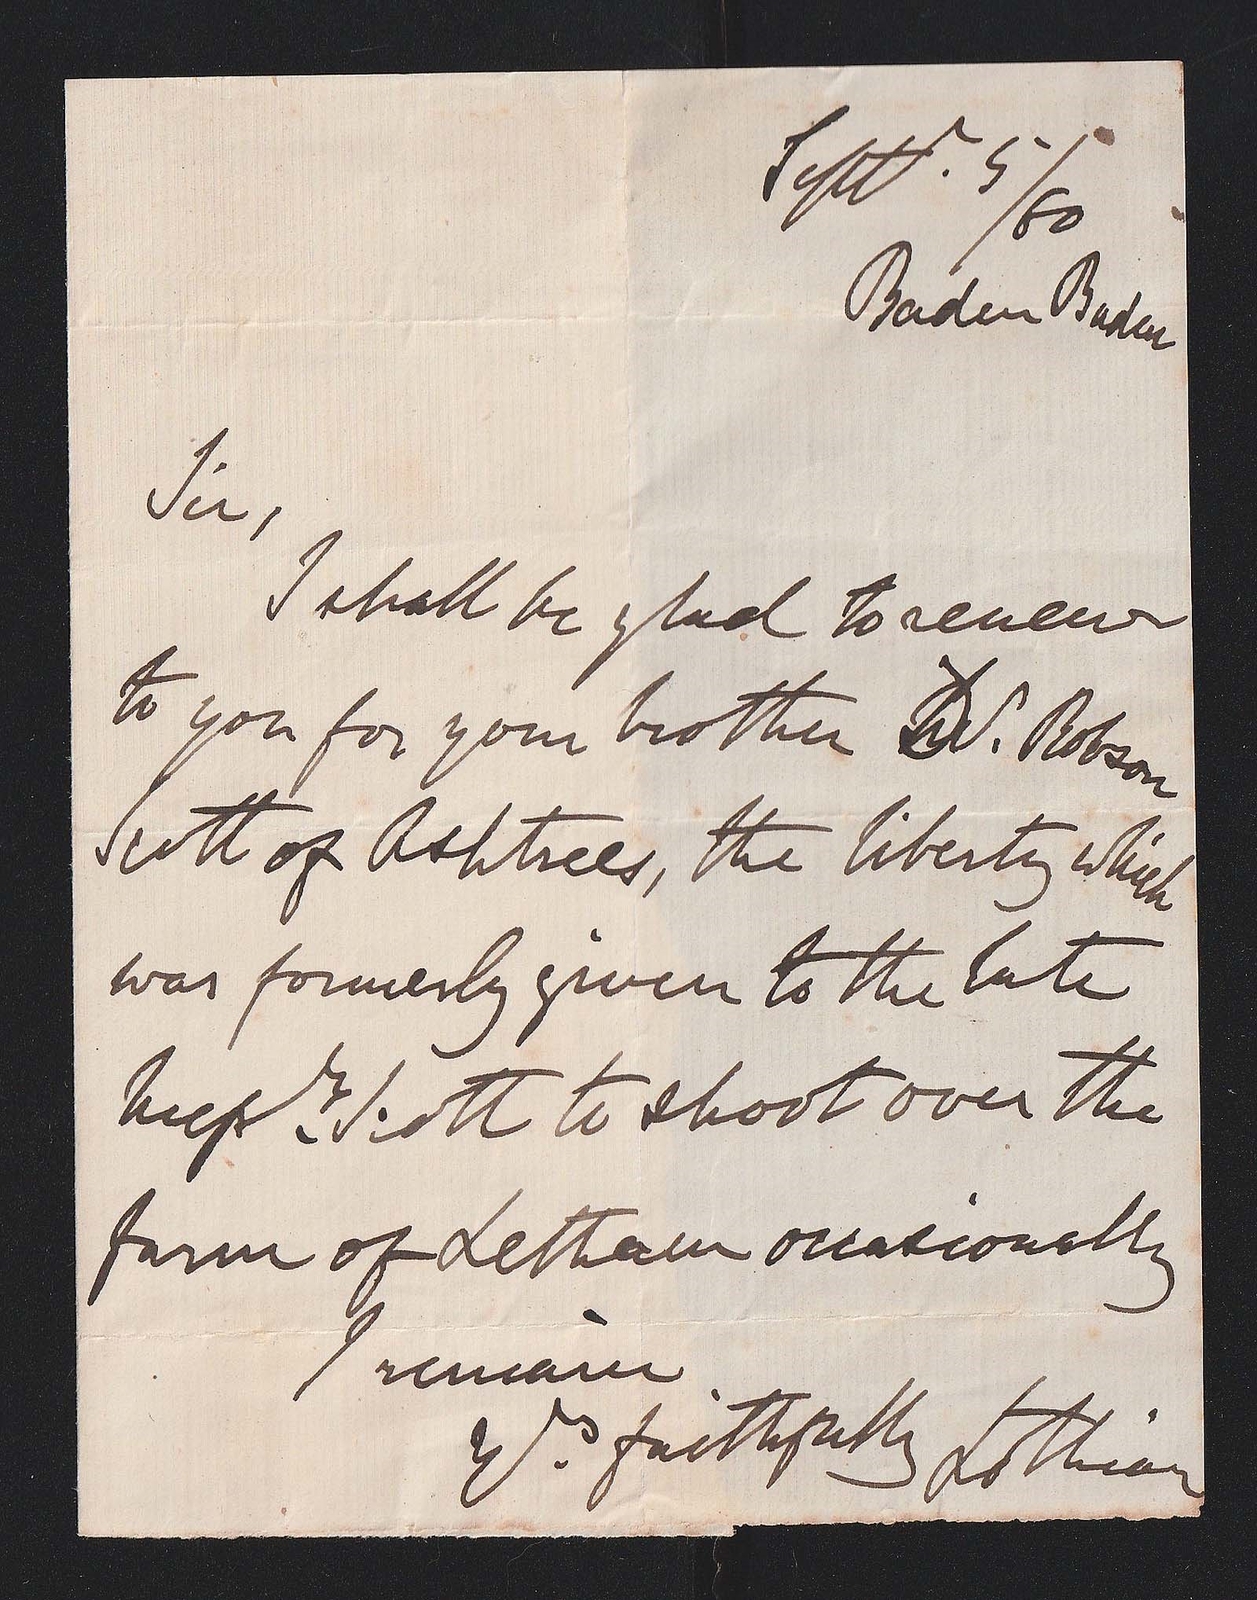 Septr. 5/60
Baden Baden
Sir,
I shall be glad to renew
to you for your brother Dr. Robson
Scott of Ashtrees, the liberty which
was formerly given to the late
Scott to shoot over the
farm of Letham occasionally
I remain
Yrs. faithfully Lothian